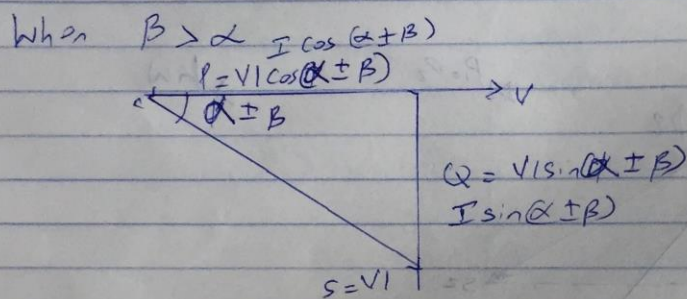 When β > α I cos (α ± β)
P = VI cos(α ± β)
V
α ± β
Q = VI sin(α ± β)
I sin(α ± β)
S = VI